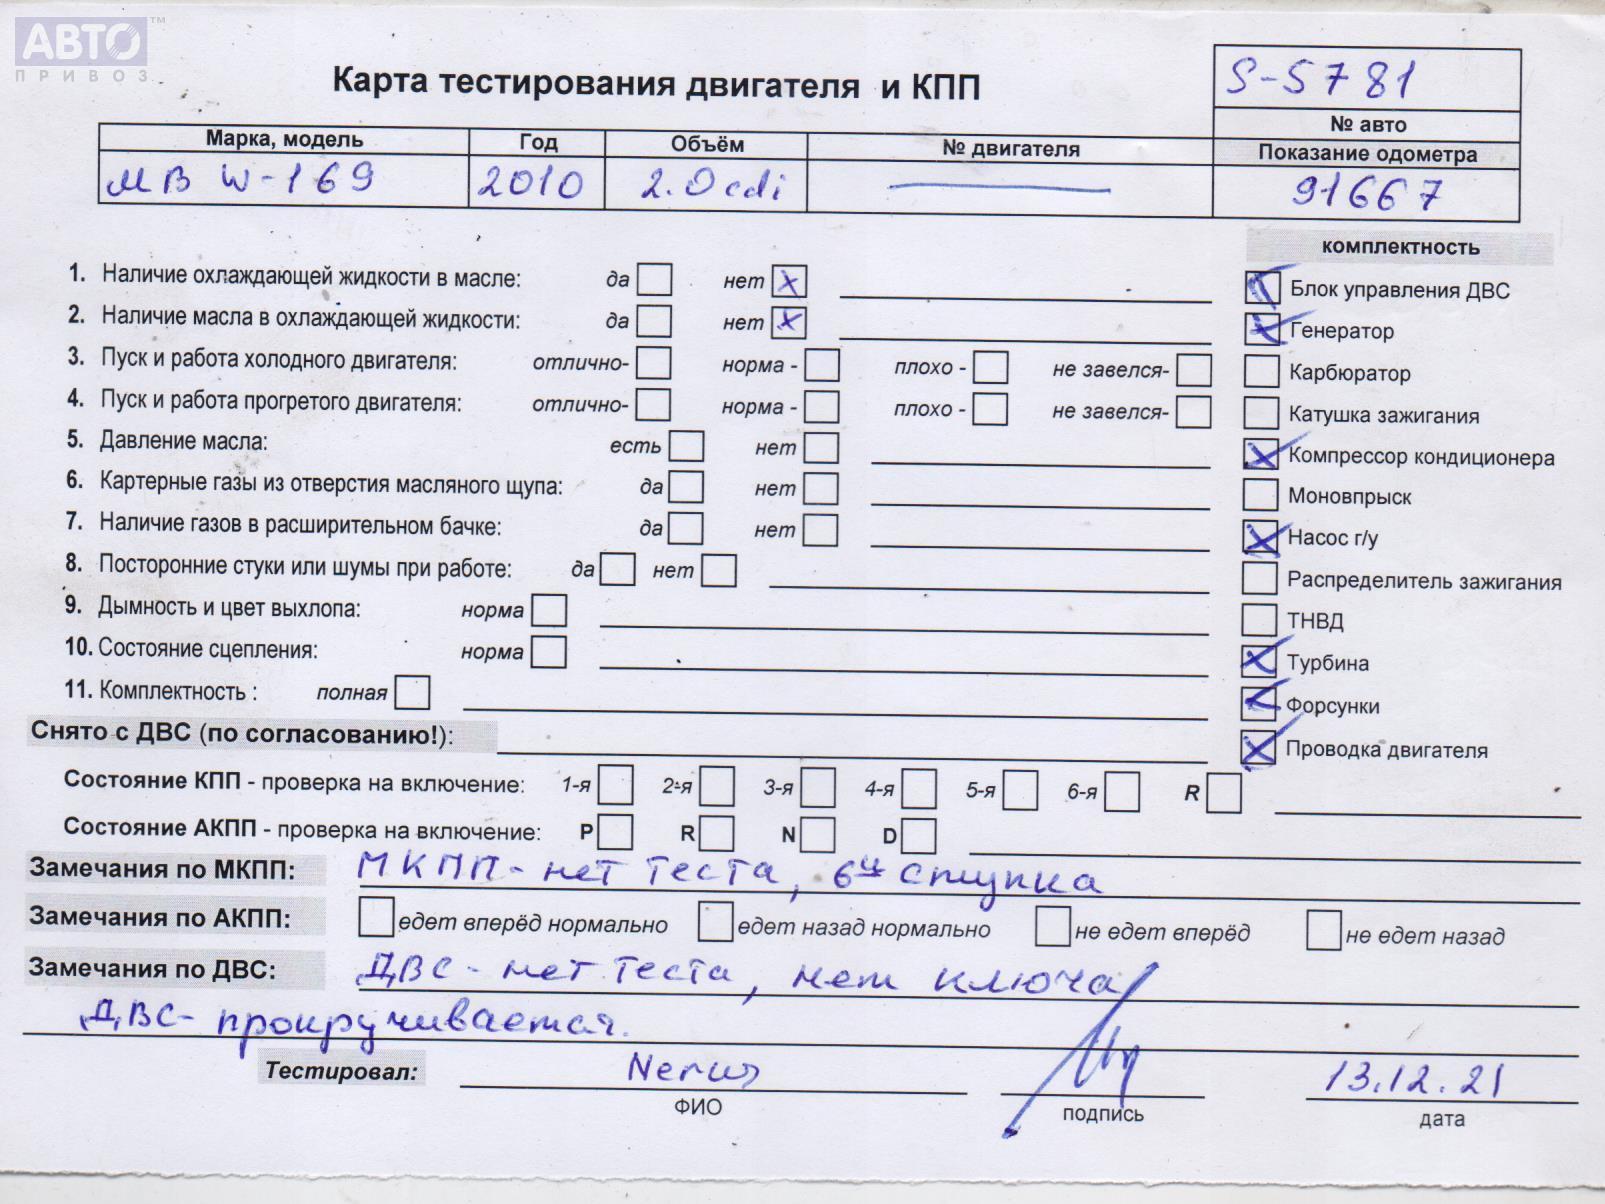 АВТО™
ПРИВОЗ
Карта тестирования двигателя и КПП
S-5781
№ авто
Марка, модель Год Объём № двигателя Показание одометра
МВ W-169 2010 2.0cdi 91667
комплектность
1. Наличие охлаждающей жидкости в масле: да нет x Блок управления ДВС
2. Наличие масла в охлаждающей жидкости: да нет x Генератор
3. Пуск и работа холодного двигателя: отлично- норма - плохо - не завелся- Карбюратор
4. Пуск и работа прогретого двигателя: отлично- норма - плохо - не завелся- Катушка зажигания
5. Давление масла: есть нет Компрессор кондиционера
6. Картерные газы из отверстия масляного щупа: да нет Моновпрыск
7. Наличие газов в расширительном бачке: да нет Насос г/у
8. Посторонние стуки или шумы при работе: да нет Распределитель зажигания
9. Дымность и цвет выхлопа: норма ТНВД
10. Состояние сцепления: норма Турбина
11. Комплектность : полная Форсунки
Снято с ДВС (по согласованию!): Проводка двигателя
Состояние КПП - проверка на включение: 1-я 2-я 3-я 4-я 5-я 6-я R
Состояние АКПП - проверка на включение: P R N D
Замечания по МКПП: МКПП - нет теста, 6ти ступка
Замечания по АКПП: едет вперёд нормально едет назад нормально не едет вперёд не едет назад
Замечания по ДВС: ДВС - нет теста, нет ключа
ДВС - прокручивается.
Тестировал: 13.12.21
ФИО подпись дата